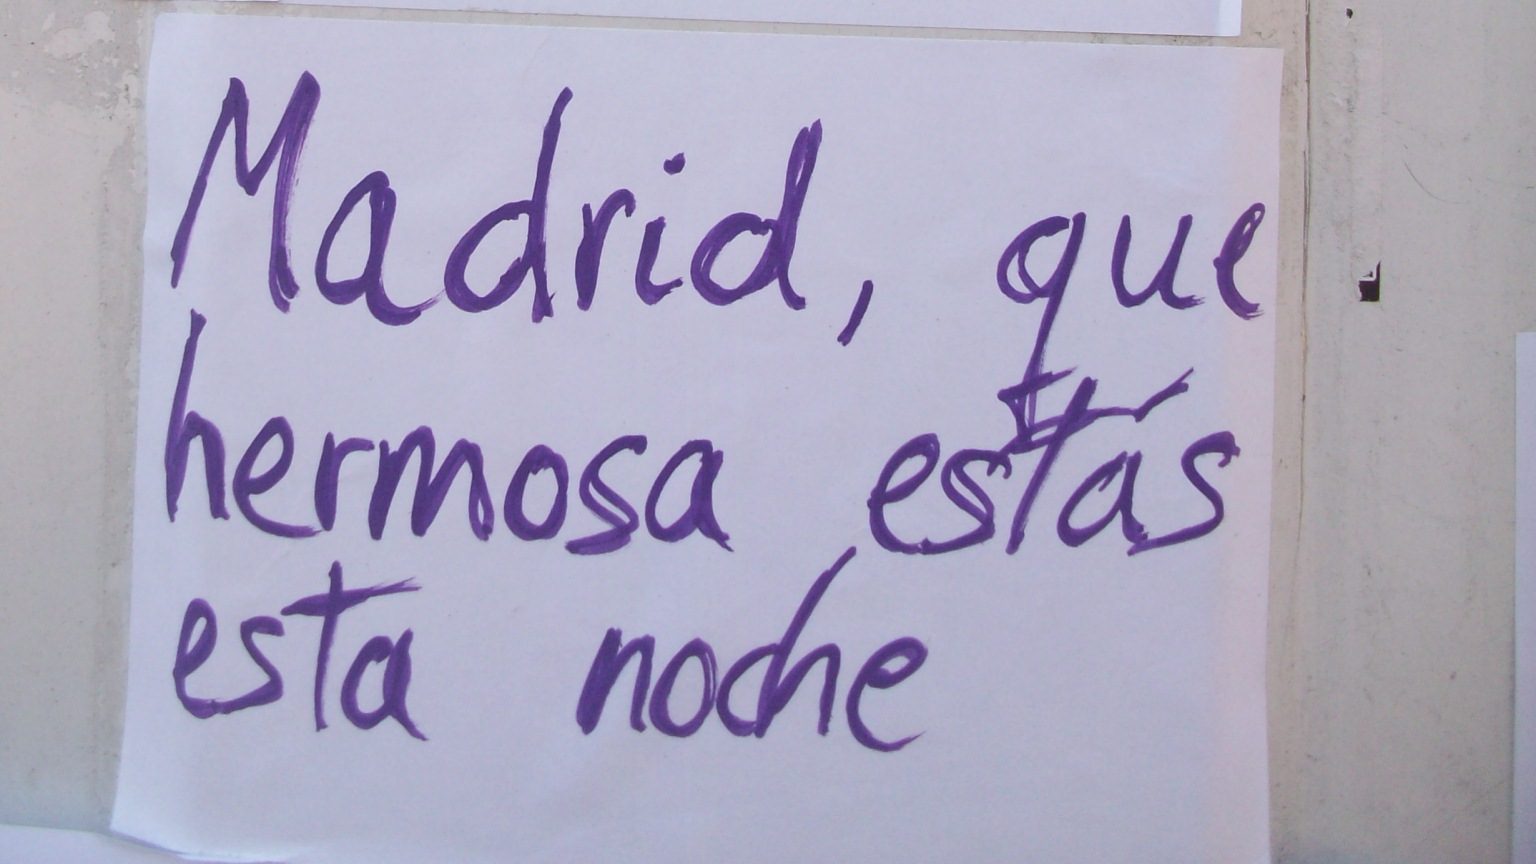 Madrid, que
hermosa estás
esta noche